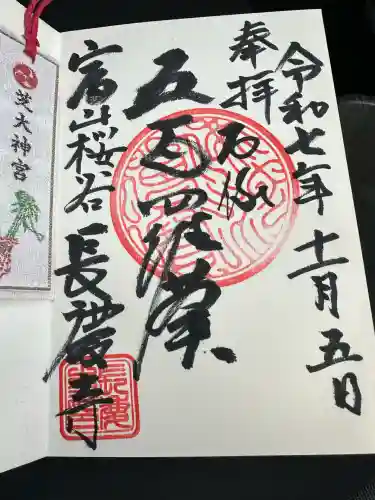 令和七年十一月五日
奉拝
石佛
五百羅漢
富山桜谷
長慶寺
芝大神宮